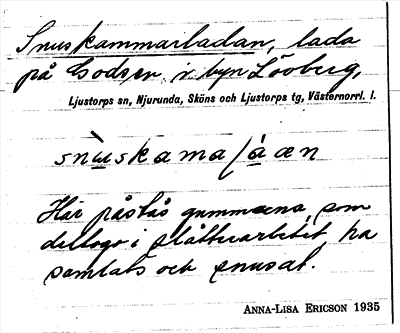 Snuskammarladan, lada
på Godsen i byn Lövberg,
Ljustorps sn, Njurunda, Sköns och Ljustorps tg, Västernorrl. l.
snùskamalàan
Här påstås gummorna, som
deltogo i slåtterarbetet, ha
samlats och snusat.
ANNA-LISA ERICSON 1935